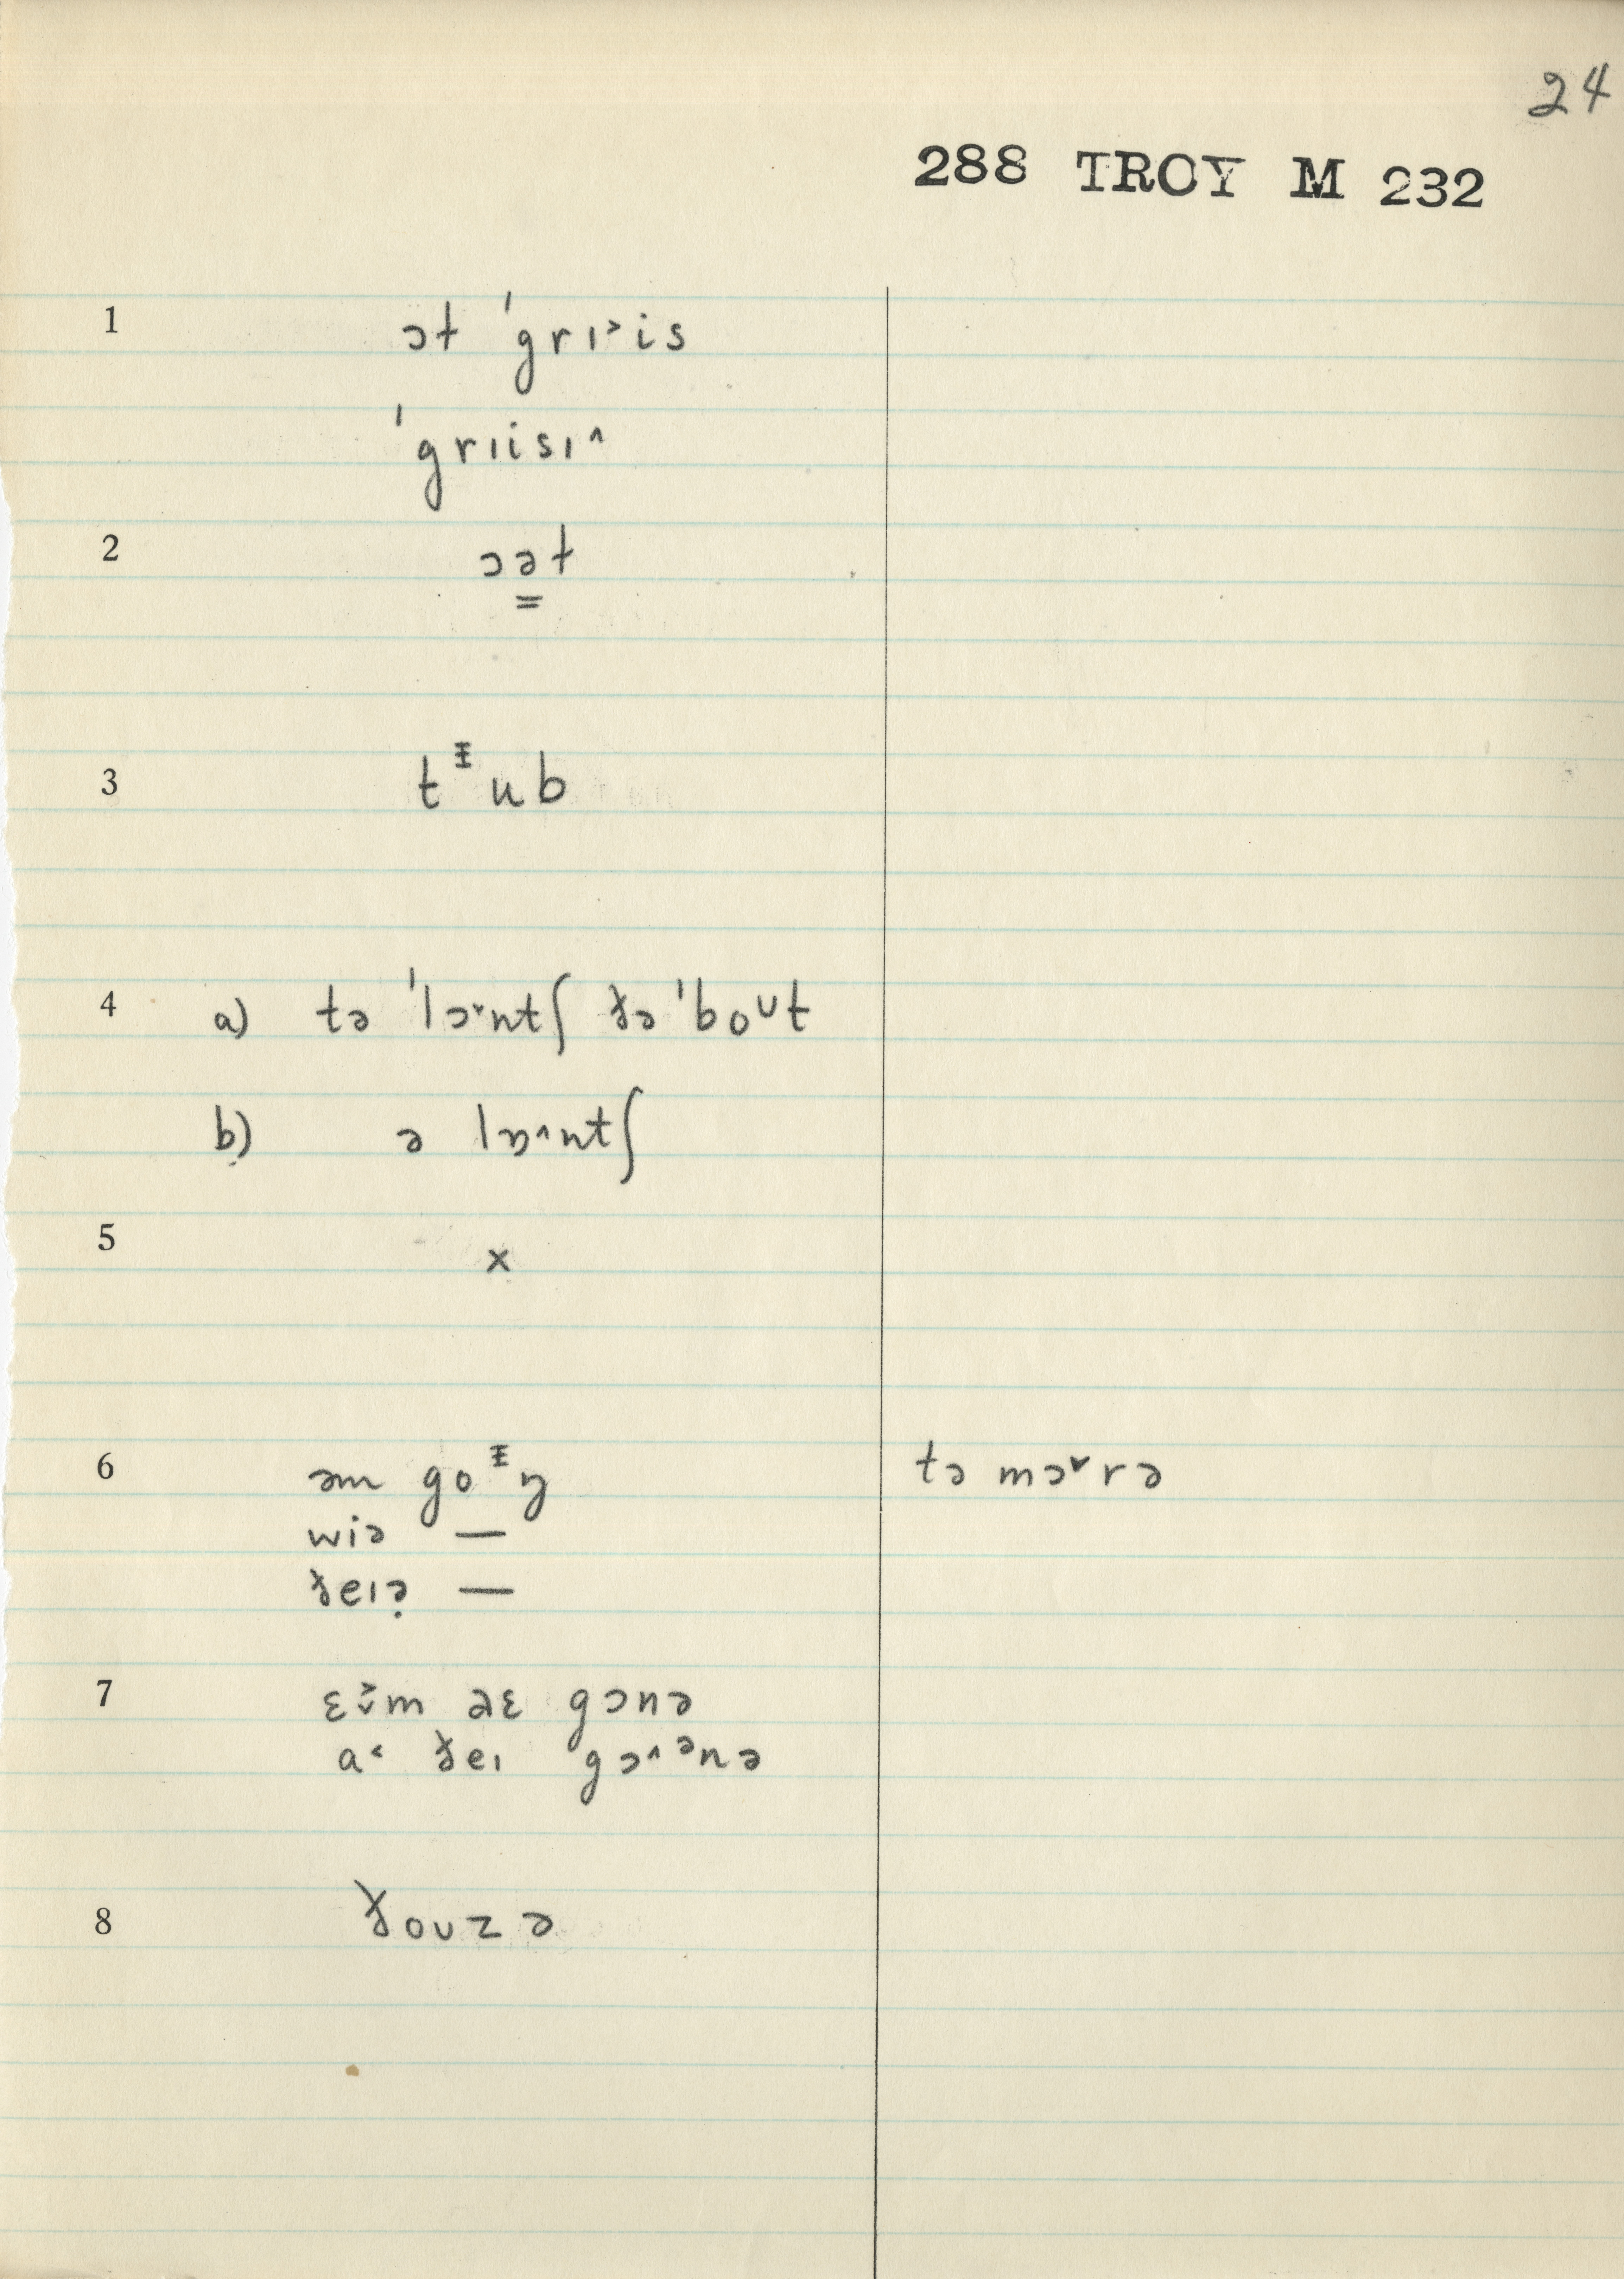 24
288 TROY M 232
1 ət ˈgrɪ˃is
ˈgrɪisɪ˄
2 ɔə̳t
3 tᵻub
4 a) tə ˈlɔ˅ntʃ ðə ˈboᴜt
b) ə lɒ˄ntʃ
5 x
6 əm goᵻŋ tə mɔ˅rə
wiə —
ðeɪə̣ —
7 gɔnə
a˂ ðeɪ gɔ˄ᵊnə
8 ðoʊzə